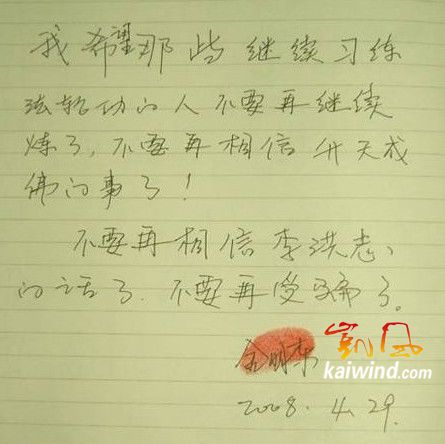 我希望那些继续习练
法轮功的人不要再继续
炼了,不要再相信升天成
佛的事了!
不要再相信李洪志、
的话了.不要再受骗了。
凯风
kaiwind.com
2008.4.29.